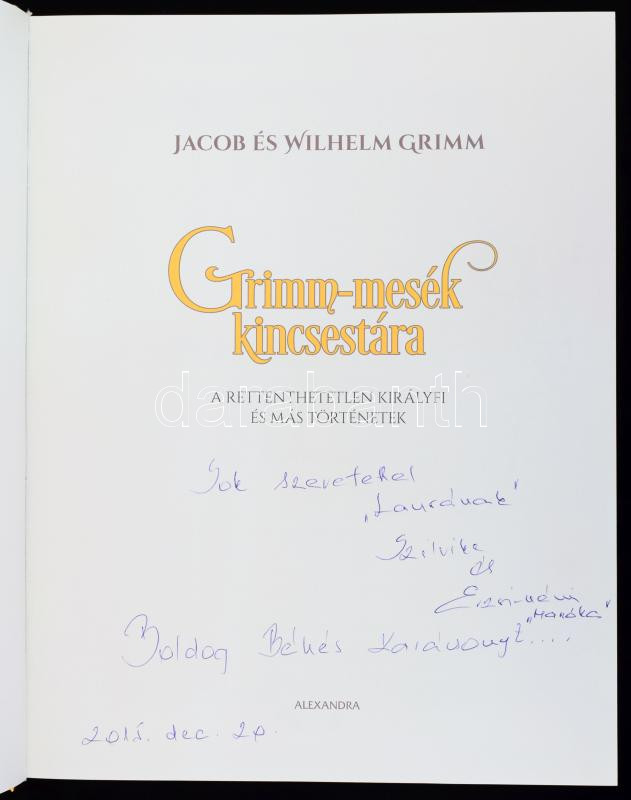 JACOB ÉS WILHELM GRIMM
Grimm-mesék
kincsestára
A RETTENTHETETLEN KIRÁLYFI
ÉS MÁS TÖRTÉNETEK
darabanth
Sok szeretettel
„Laurának"
Szilvike
és
Erzsi-néni
„Manóka"
Boldog Békés Karácsonyt....
ALEXANDRA
2015. dec. 20.